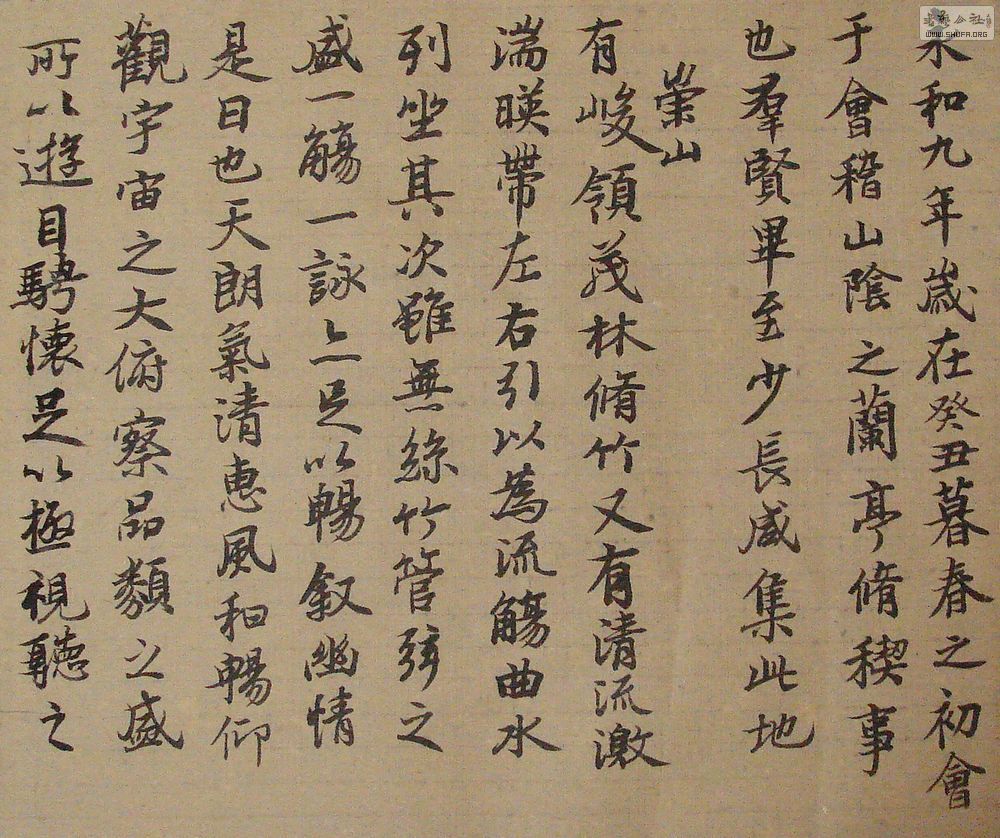 永和九年歲在癸丑暮春之初會
于會稽山陰之蘭亭脩稧事
也羣賢畢至少長咸集此地
崇山
有峻領茂林脩竹又有清流激
湍暎帶左右引以為流觴曲水
列坐其次雖無絲竹管弦之
盛一觴一詠亦足以暢敘幽情
是日也天朗氣清惠風和暢仰
觀宇宙之大俯察品類之盛
所以遊目騁懷足以極視聽之
WWW.SHUFA.ORG